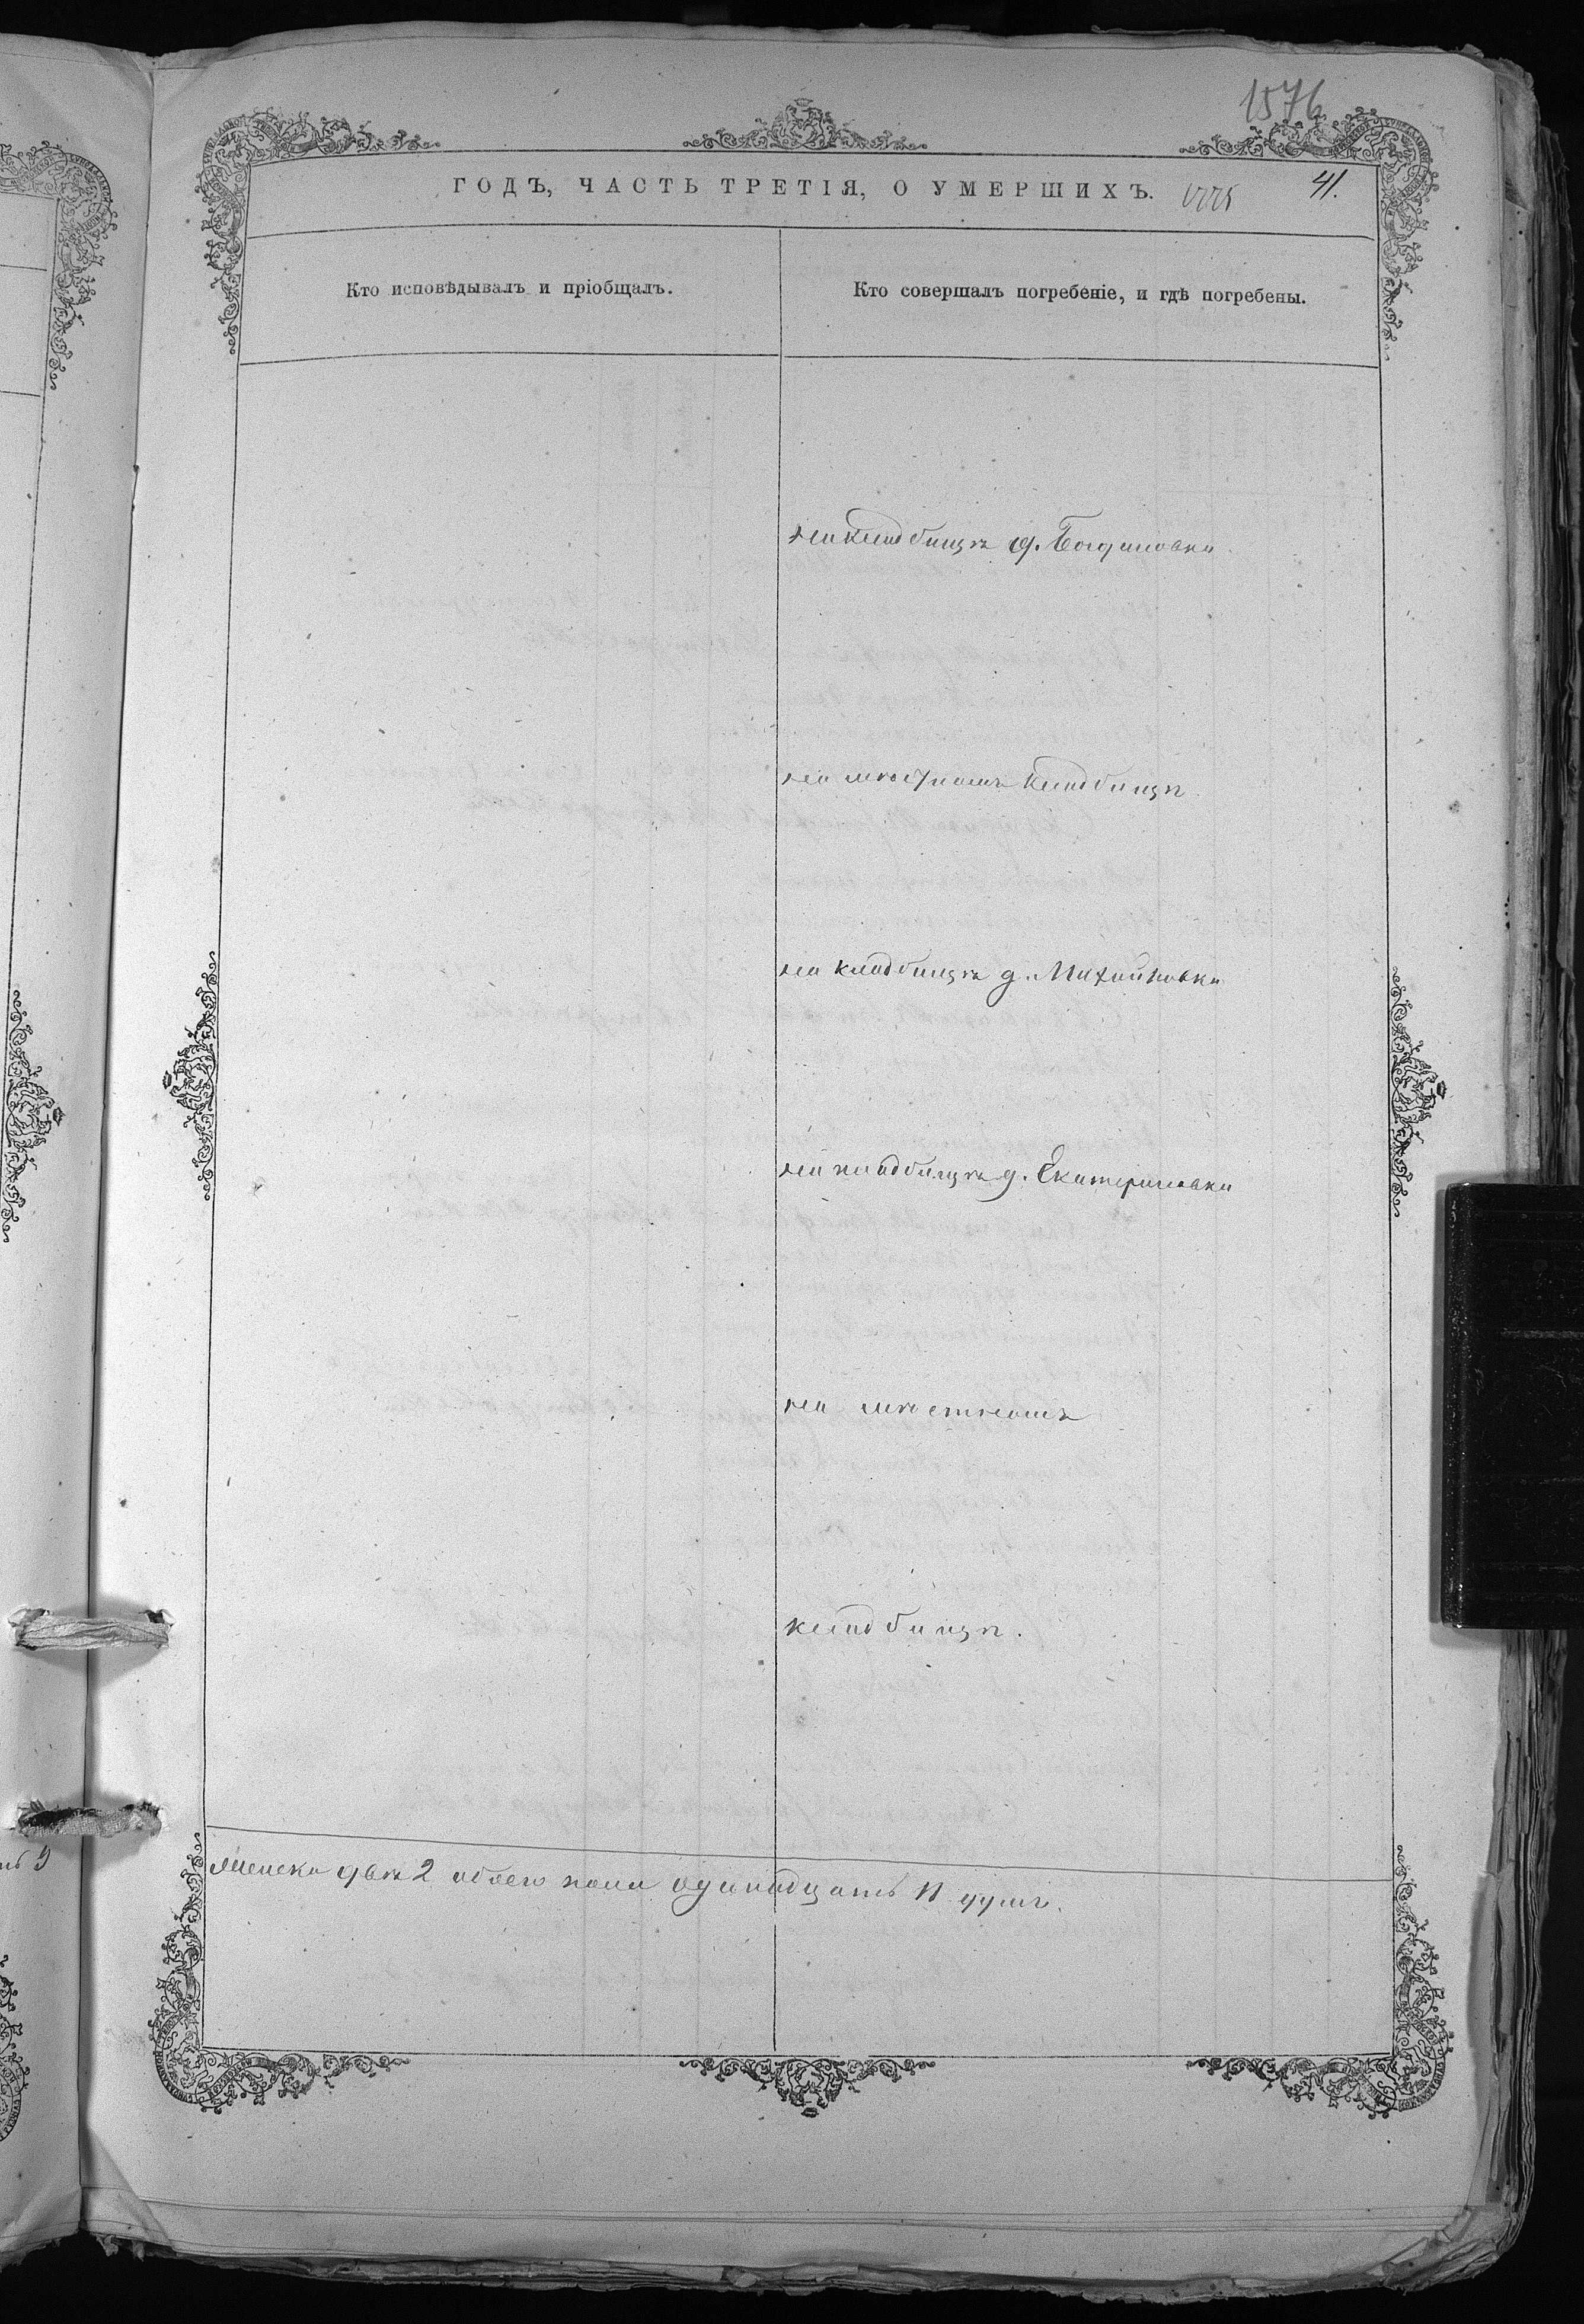 1576
ГОДЪ, ЧАСТЬ ТРЕТІЯ, О УМЕРШИХЪ. 41.
Кто исповѣдывалъ и пріобщалъ.
Кто совершалъ погребеніе, и гдѣ погребены.
на кладбищѣ д. Богдановки
на мѣстномъ кладбищѣ
на кладбищѣ д. Михайловки
на кладбищѣ д. Екатериновки
на мѣстномъ
кладбищѣ.
женска двѣ 2 обоего пола одинадцать 11 душъ.